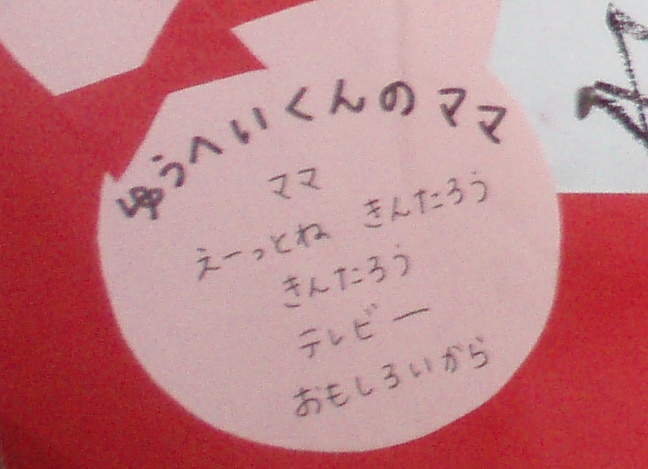 ゆうへいくんのママ
ママ
えーっとね きんたろう
きんたろう
テレビー
おもしろいから